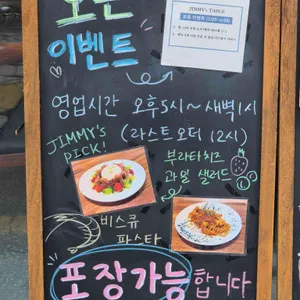 오픈
이벤트
JIMMY's TABLE
영업시간 오후5시~새벽1시
(라스트오더 12시)
JIMMY's
PICK!
부라타치즈
과일 샐러드
비스큐
파스타
포장가능합니다